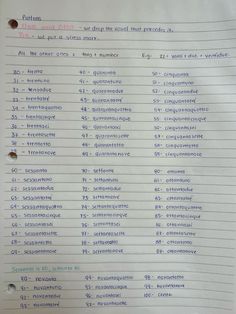 Pattern
Uno and Otto - we drop the vowel that precedes it.
Tre - we put a stress mark.
All the other ones : tens + number E.g: 22 = venti + due = ventidue
30 - trenta 40 - quaranta 50 - cinquanta
31 - trentuno 41 - quarantuno 51 - cinquantuno
32 - trentadue 42 - quarantadue 52 - cinquantadue
33 - 43 - 53 -
34 - trentaquattro 44 - quarantaquattro 54 - cinquantaquattro
35 - trentacinque 45 - quarantacinque 55 - cinquantacinque
36 - trentasei 46 - quarantasei 56 - cinquantasei
37 - trentasette 47 - quarantasette 57 - cinquantasette
38 - trentotto 48 - quarantotto 58 - cinquantotto
39 - trentanove 49 - quarantanove 59 - cinquantanove
60 - sessanta 70 - settanta 80 - ottanta
61 - sessantuno 71 - settantuno 81 - ottantuno
62 - sessantadue 72 - settantadue 82 - ottantadue
63 - 73 - 83 -
64 - sessantaquattro 74 - settantaquattro 84 - ottantaquattro
65 - sessantacinque 75 - settantacinque 85 - ottantacinque
66 - sessantasei 76 - settantasei 86 - ottantasei
67 - sessantasette 77 - settantasette 87 - ottantasette
68 - sessantotto 78 - settantotto 88 - ottantotto
69 - sessantanove 79 - settantanove 89 - ottantanove
90 - novanta 94 - novantaquattro 98 - novantotto
91 - novantuno 95 - novantacinque 99 - novantanove
92 - novantadue 96 - novantasei 100 - cento
93 - 97 - novantasette